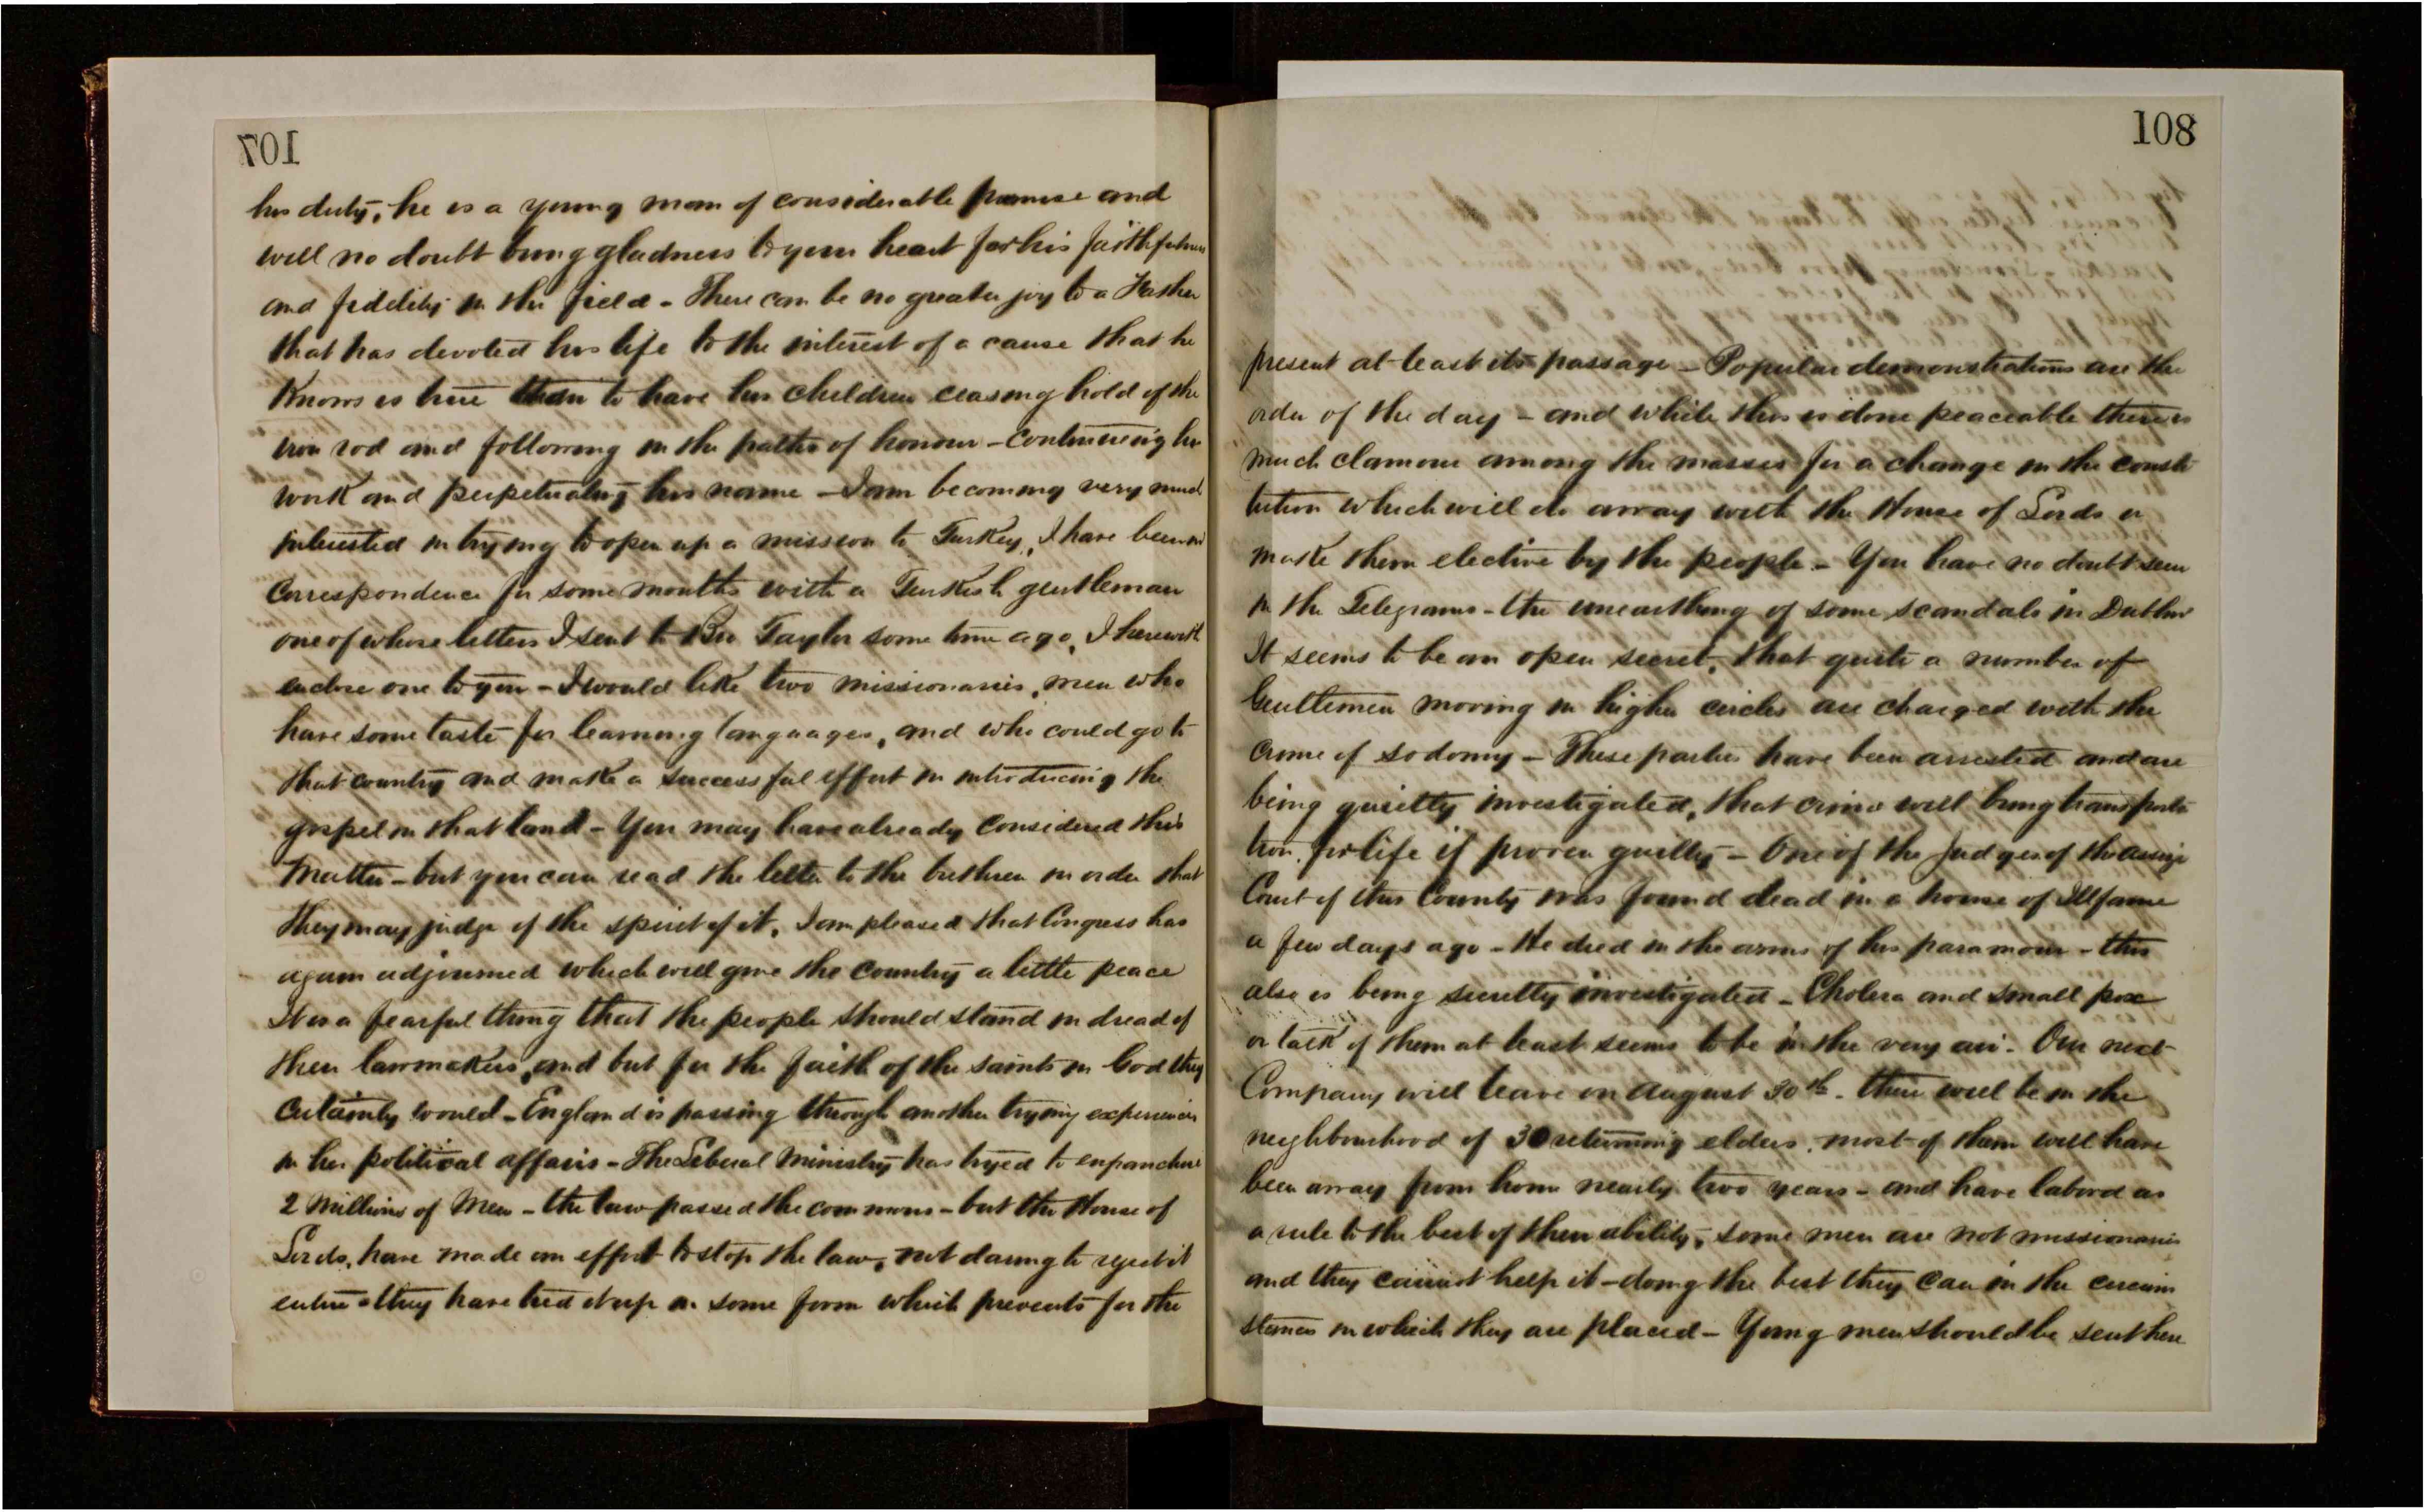 107
his duty, he is a young man of considerable promise and
will no doubt bring gladness to your heart for his faithfulness
and fidelity in the field - There can be no greater joy to a Father
that has devoted his life to the interest of a cause that he
Knows is true than to have his children ceasing hold of the
iron rod and following in the paths of honour - continueing his
work and perpetuating his name - I am becoming very much
interested in trying to open up a mission to Turkey, I have been in
Correspondence for some months with a Turkish gentleman
one of whose letters I sent to Bro Taylor some time ago, I herewith
enclose one to you - I would like two missionaries, men who
have some taste for learning languages, and who could go to
that country and make a successful effort in introducing the
gospel in that land - You may have already considered this
Matter - but you can read the letter to the brethren in order that
they may judge of the spirit of it, I am pleased that Congress has
again adjourned which will give the Country a little peace
It is a fearful thing that the people should stand in dread of
their lawmakers, and but for the faith of the saints in God they
Certainly would - England is passing through another trying experiences
in her political affairs - The Liberal Ministry has tryed to enfranchise
2 Millions of Men - the law passed the commons - but the House of
Lords, have made an effort to stop the law, not daring to reject it
entire - they have tied it up in some form which prevents for the
108
present at least its passage - Popular demonstrations are the
order of the day - and while this is done peaceable there is
much clamour among the masses for a change in the consti
tution which will do away with the House of Lords or
make them elective by the people - You have no doubt seen
in the Telegrams - the unearthing of some scandals in Dublin
It seems to be an open secret, that quite a number of
Gentlemen moving in higher circles are charged with the
crime of sodomy - These parties have been arrested and are
being quietly investigated, that crime will bring transporta
tion for life if proven guilty - One of the Judges of the Assize
Court of this County was found dead in a house of Illfame
a few days ago - He died in the arms of his paramour - this
also is being secretly investigated - Cholera and Small pox
or talk of them at least seems to be in the very air - Our next
Company will leave on August 30th - there will be in the
neighbourhood of 30 returning elders, most of them will have
been away from home nearly two years - and have labord as
a rule to the best of their ability, some men are not missionaries
and they cannot help it - doing the best they can in the circum
stances in which they are placed - Young men should be sent here